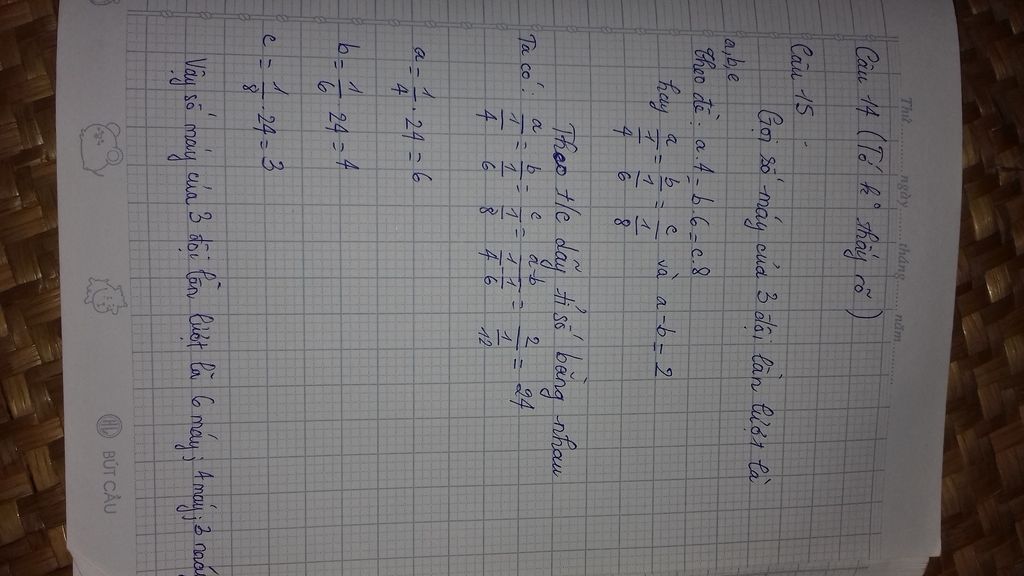 Thứ ........ ngày ........ tháng ........ năm ........
Câu 14 (Tớ k° thấy rõ)
Câu 15
Gọi số máy của 3 đội lần lượt là
a,b,c
Theo đề: a.4 = b.6 = c.8
hay a/(1/4) = b/(1/6) = c/(1/8) và a-b = 2
Theo t/c dãy tỉ số bằng nhau
Ta có: a/(1/4) = b/(1/6) = c/(1/8) = (a-b)/(1/4 - 1/6) = 2/(1/12) = 24
a = 1/4 . 24 = 6
b = 1/6 . 24 = 4
c = 1/8 . 24 = 3
Vậy số máy của 3 đội lần lượt là 6 máy; 4 máy; 3 máy
BÚT CẦU